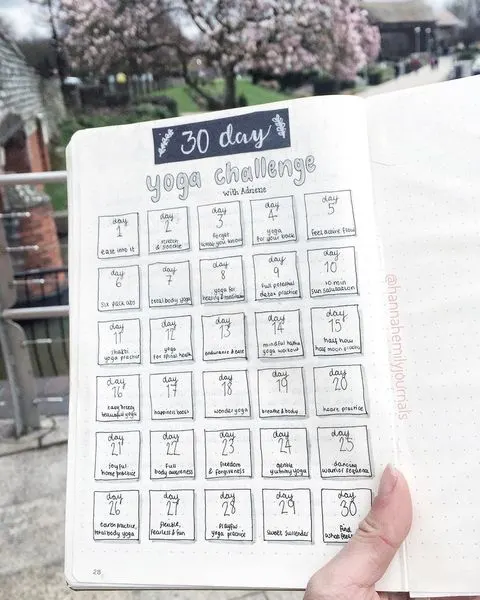 30 day
yoga challenge
with Adriene
day
1
ease into it
day
2
stretch
& soothe
day
3
forget
what you know
day
4
yoga
for your back
day
5
feel alive flow
day
6
six pack abs
day
7
total body yoga
day
8
yoga for
healing & meditation
day
9
full potential
detox practice
day
10
10 min
sun salutation
day
11
shakti
yoga practice
day
12
yoga
for spinal health
day
13
endurance & ease
day
14
mindful hatha
yoga workout
day
15
half how
half moon practice
day
16
easy breezy
beautiful yoga
day
17
happiness boost
day
18
wonder yoga
day
19
breathe & body
day
20
heart practice
day
21
joyful
home practice
day
22
full
body awareness
day
23
freedom
& forgiveness
day
24
gentle
yummy yoga
day
25
dancing
warrior sequence
day
26
earth practice,
total body yoga
day
27
flexible,
fearless & fun
day
28
playful
yoga practice
day
29
sweet surrender
day
30
find
what feels
28
@hannahemilyjournals